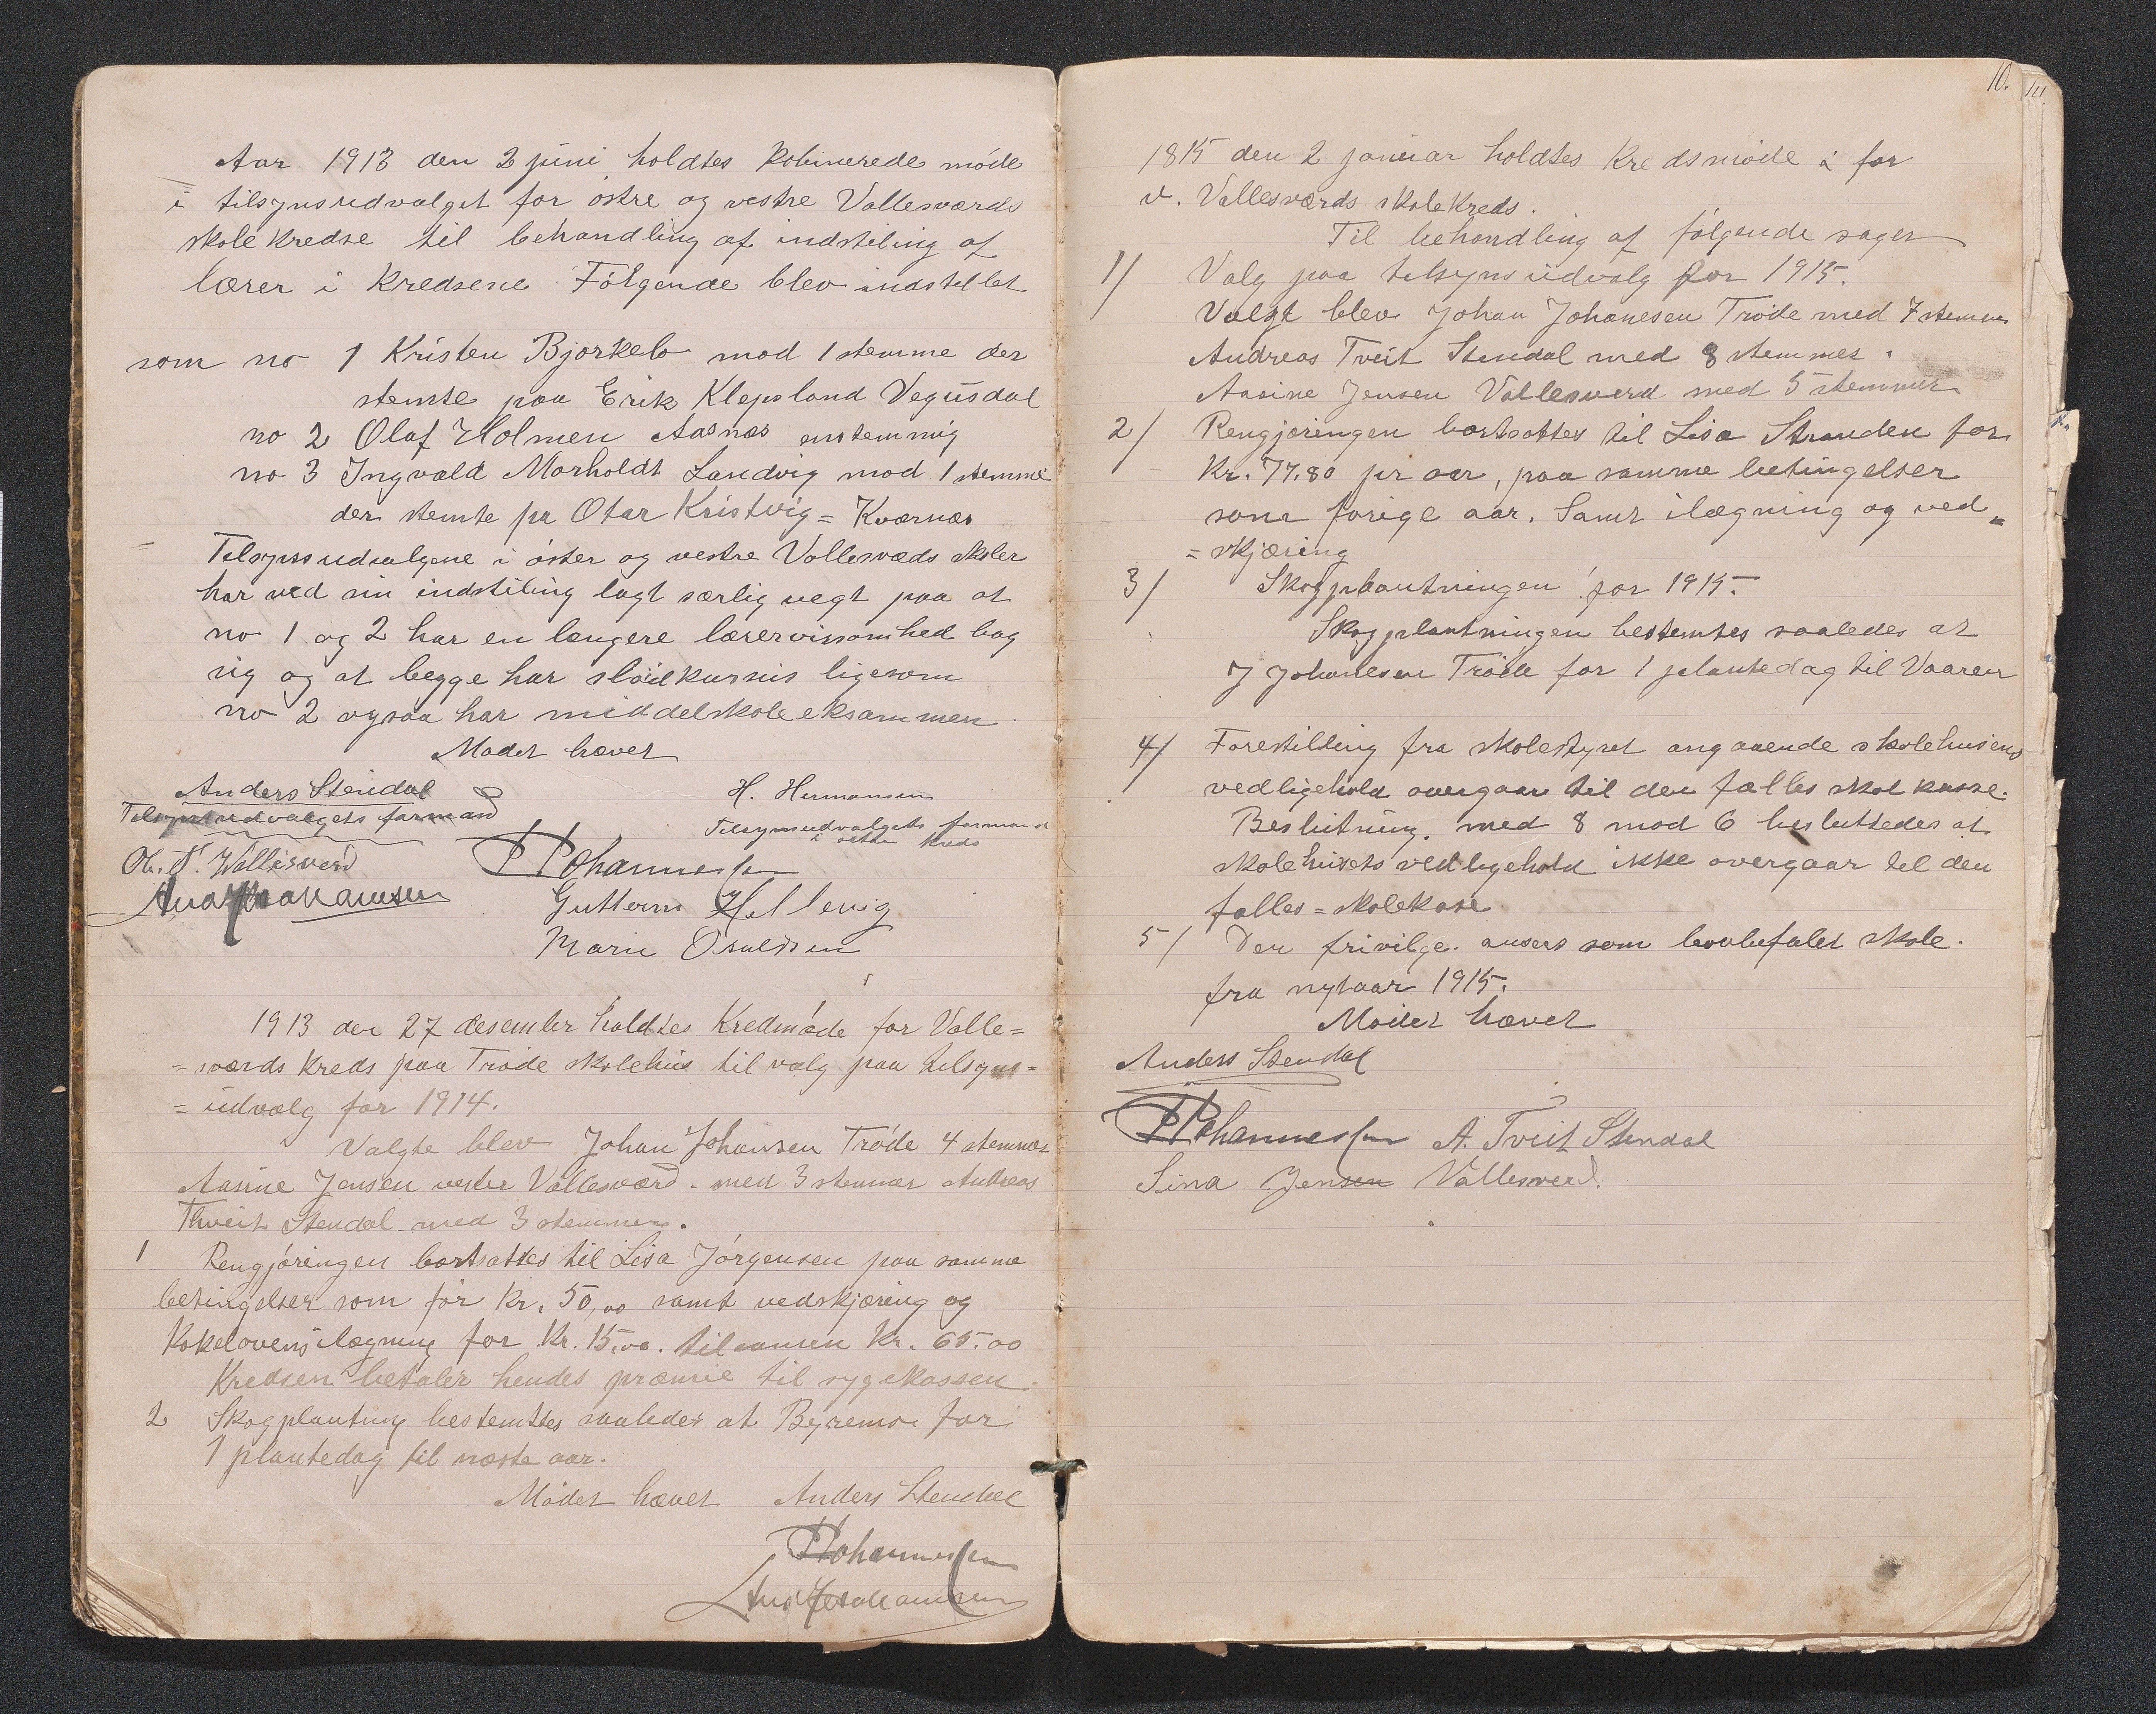 Aar 1913 den 2 juni holdtes kobinerede møde
i tilsynsudvalget for østre og vestre Vallesværds
skolekredse til behandling af indstiling af
lærer i kredsene Følgende blev indstillet
som no 1 Kristen Bjorkelo mod 1 stemme der
stemte paa Erik Klepsland Vegusdal
no 2 Olaf Holmen Aasnæs enstemmig
no 3 Ingvald Morholdt Landvig mod 1 stemme
der stemte pa Otar Kristvig = Kværnæs
Tilsynsudvalgene i øster og vestre Vallesvæds skoler
har ved sin indstiling lagt særlig vegt paa at
no 1 og 2 har en længere lærervirsomhed bag
sig og at begge har sløidkursus ligesom
no 2 ogsaa har middelskoleeksammen.
Mødet hævet
Anders Stendal
Tilsynsudvalgets formand
H. Hermansen
Tilsynsudvalgets formand
i østre kreds
Ol. T. Wallesverd
P Johannessen
Guttorm Hellevig
Marie Osuldsen
1913 den 27 desember holdtes Kredmøde for Valle=
=sværds kreds paa Trøde skolehus til valg paa tilsyns=
=udvalg for 1914.
Valgte blev Johan Johansen Trøde 4 stemmer
Aasine Jensen vester Vallesværd. med 3 stemmer Andreas
Thveit Stendal med 3 stemmer.
1 Rengjøringen bortsattes til Lisa Jørgensen paa samme
betingelser som før Kr. 50,00 samt vedskjæring og
Kokelovens ilægning for Kr. 15,00. tilsamen Kr. 65.00
Kredsen betaler hendes præmie til sygekassen.
2 Skogplanting bestemtes saaledes at Byremo for
1 plantedag til næste aar.
Mødet hævet Anders Stendal
P Johannessen
10.
1815 den 2 januar holdtes Kredsmøde i for
v. Vallesværds skolekreds.
Til behandling af følgende sager
1/ Valg paa tilsynsudvalg for 1915.
Valgt blev Johan Johanesen Trøde med 7 stemmer
Andreas Tveit Stendal med 8 stemmer.
Aasine Jensen Vallesverd med 5 stemmer
2/ Rengjøringen bortsattes til Lisa Stranden for
Kr. 77.80 pr aar, paa samme betingelser
some forige aar. Samt ilægning og ved=
=skjæring
3/ Skogplantningen for 1915.
Skogplantningen bestemtes saaledes at
J Johanesen Trøde for 1 plantedag til Vaaren
4/ Forestilling fra skolestyret angaaende skolehusens
vedligehold overgaar til den fælles skolkasse.
Beslutning. med 8 mod 6 besluttedes at
skolehusets vedligehold ikke overgaar til den
falles=skolekase
5/ Den frivilge. ansees som lovbefalet skole.
fra nytaar 1915.
Mødet hævet
Anders Stendal
P Johannessen A. Tveit Stendal
Sina Jensen Vallesverd.